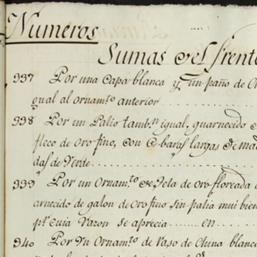 Numeros
Sumas del frente
337 Por una Capa blanca y un paño de O
gual al ornamto anterior
338 Por un Palio tambn igual, guarnecido
fleco de oro fino, con 6 baras largas de ma
das de Verde
339 Por un Ornamto de tela de oro floreada
arnecido de galon de oro fino sin palia mui bien
pr cuia razon se aprecia en
340 Por Un Ornamto de Raso de China blanc